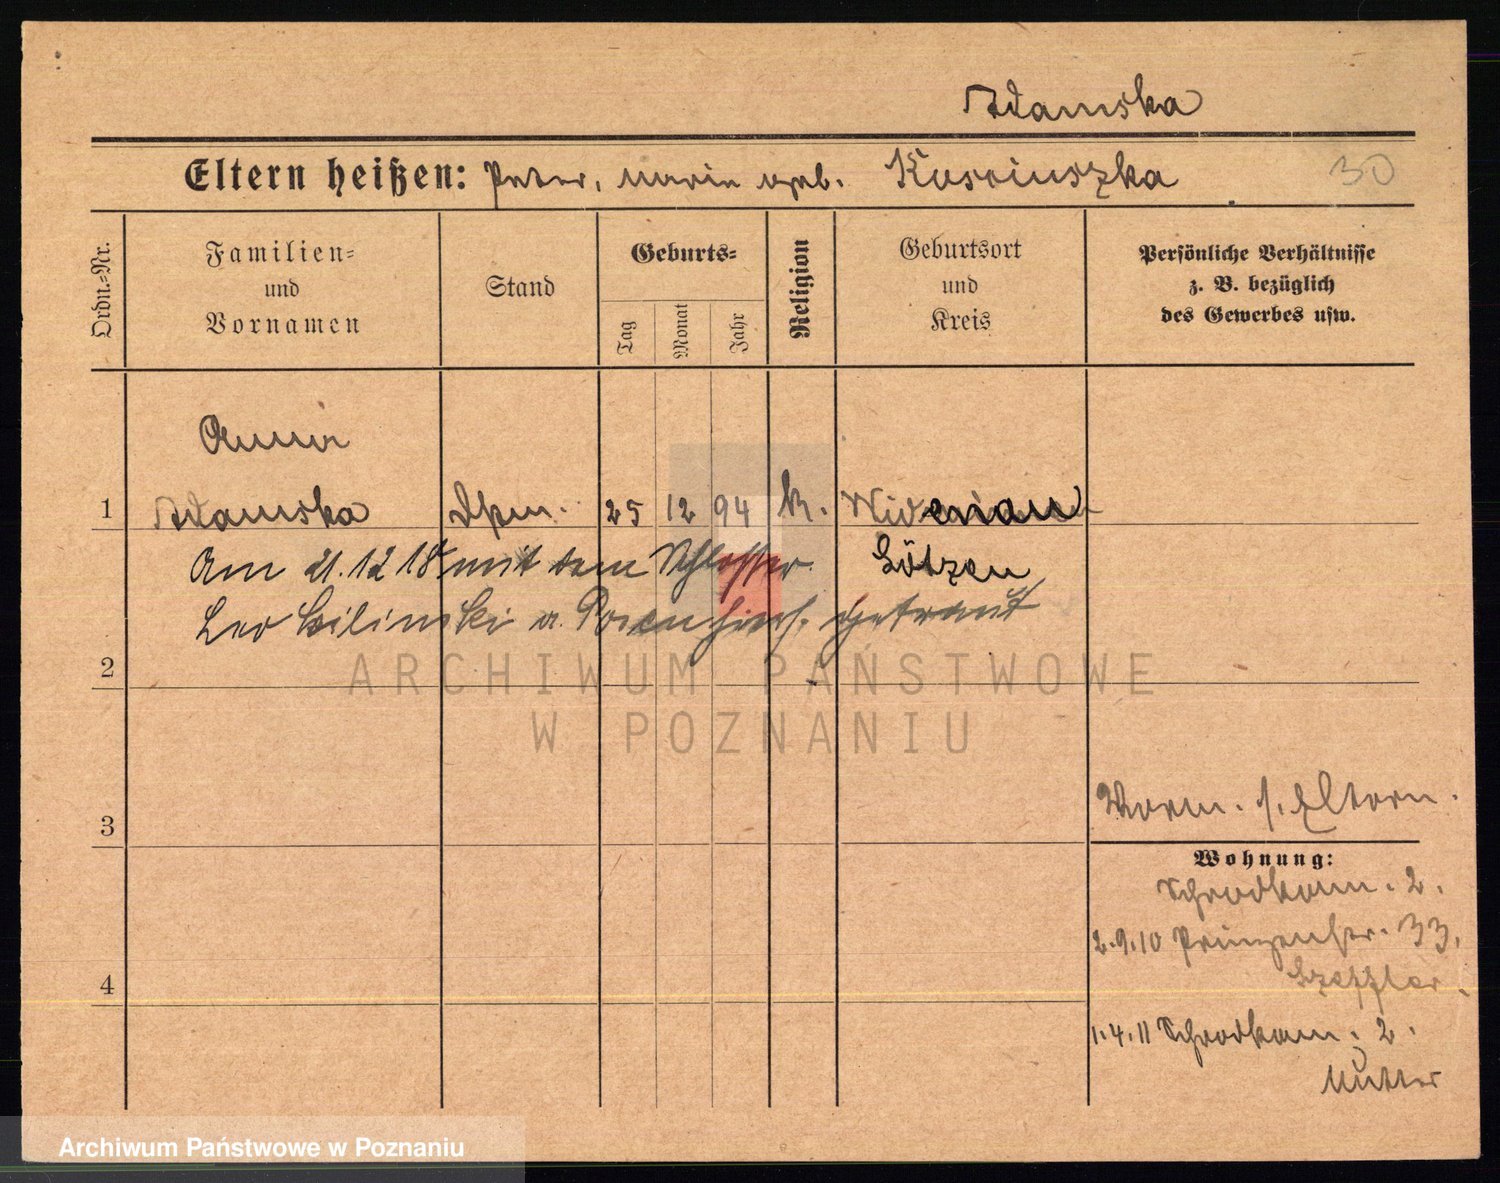 Adamska
Eltern heißen: Peter, Marie geb. Kosciuszka
30
Ordn.=Nr.
Familien=
und
Vornamen
Stand
Geburts=
Tag
Monat
Jahr
Religion
Geburtsort
und
Kreis
Persönliche Verhältnisse
z. B. bezüglich
des Gewerbes usw.
Anna
1 Adamska 25 12 94 k.
Am 21.12 18 mit dem Schlosser Lötzen
Leo a. Posen hier. getraut
2
3
Vorm. s. Eltern.
Wohnung:
Schrodkam. 2.
2.9.10 Prinzenstr. 33.
4
1.4.11 Schrodkam. 2.
Mutter
ARCHIWUM PAŃSTWOWE
W POZNANIU
Archiwum Państwowe w Poznaniu